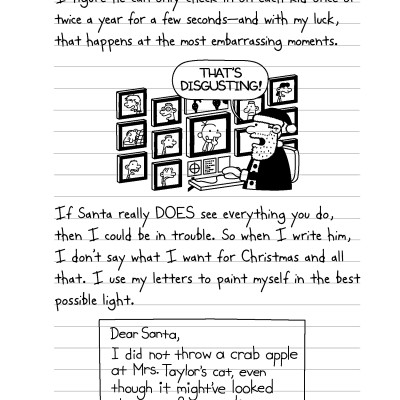 I figure he can only check in on each kid once or
twice a year for a few seconds—and with my luck,
that happens at the most embarrassing moments.
THAT'S
DISGUSTING!
If Santa really DOES see everything you do,
then I could be in trouble. So when I write him,
I don't say what I want for Christmas and all
that. I use my letters to paint myself in the best
possible light.
Dear Santa,
I did not throw a crab apple
at Mrs. Taylor's cat, even
though it might've looked